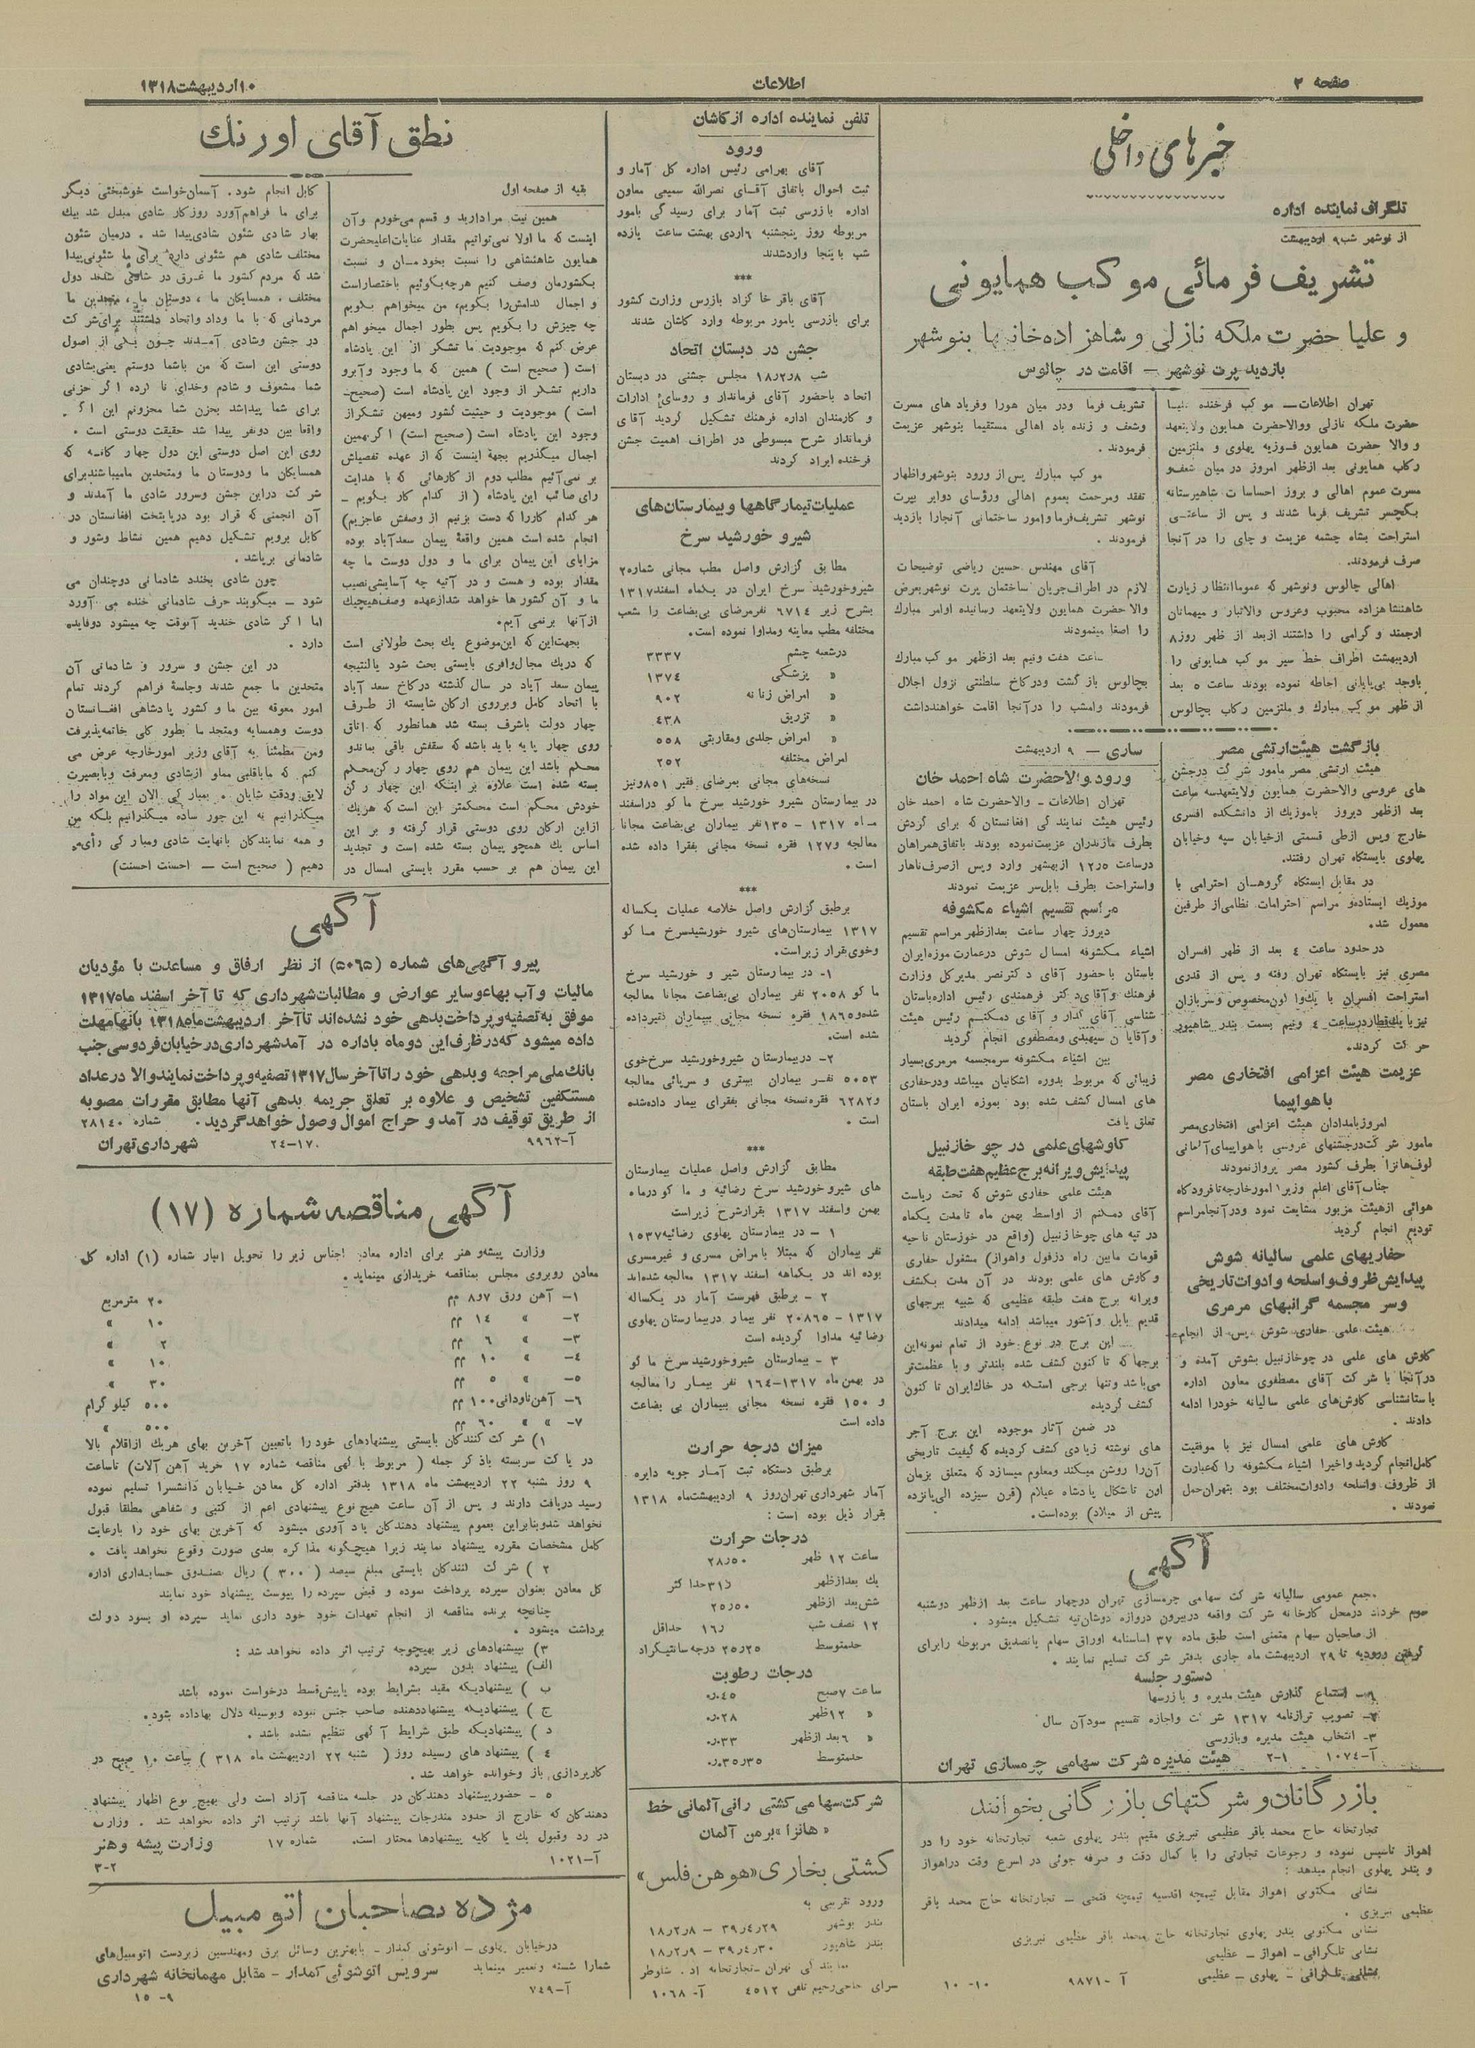 صفحه ۲
اطلاعات
۱۰ اردیبهشت ۱۳۱۸
خبرهای داخلی
تلگراف نماینده اداره
از نوشهر شب ۹ اردیبهشت
تشریف فرمائی موکب همایونی
و علیا حضرت ملکه نازلی و شاهزاده خانمها بنوشهر
بازدید پرت نوشهر — اقامت در چالوس
تهران اطلاعات — موکب فرخنده علیا
حضرت ملکه نازلی ووالاحضرت همایون ولایتعهد
و والا حضرت همایون فوزیه پهلوی و ملتزمین
رکاب همایونی بعد ازظهر امروز در میان شعف و
مسرت عموم اهالی و بروز احساسات شاهپرستانه
بگچسر تشریف فرما شدند و پس از ساعتی
استراحت بشاه چشمه عزیمت و چای را در آنجا
صرف فرمودند.
اهالی چالوس ونوشهر که عموما انتظار زیارت
شاهنشاهزاده محبوب وعروس والاتبار و میهمانان
ارجمند و گرامی را داشتند ازبعد از ظهر روز ۸
اردیبهشت اطراف خط سیر موکب همایونی را
باوجد بی‌پایانی احاطه نموده بودند ساعت ۵ بعد
از ظهر موکب مبارک و ملتزمین رکاب بچالوس
تشریف فرما ودر میان هورا وفریاد های مسرت
وشعف و زنده باد اهالی مستقیما بنوشهر عزیمت
فرمودند.
موکب مبارک پس از ورود بنوشهر واظهار
تفقد ومرحمت بعموم اهالی ورؤسای دوایر بپرت
نوشهر تشریف‌فرما وامور ساختمانی آنجارا بازدید
فرمودند.
آقای مهندس حسین ریاضی توضیحات
لازم در اطراف جریان ساختمان پرت نوشهر بعرض
والا حضرت همایون ولایتعهد رسانیده اوامر مبارک
را اصغا مینمودند
ساعت هفت ونیم بعد ازظهر موکب مبارک
بچالوس باز گشت ودرکاخ سلطنتی نزول اجلال
فرمودند وامشب را در آنجا اقامت خواهند داشت
بازگشت هیئت ارتشی مصر
هیئت ارتشی مصر مامور شرکت درجشن
های عروسی والاحضرت همایون ولایتعهد سه ساعت
بعد ازظهر دیروز باموزیک از دانشکده افسری
خارج وپس ازطی قسمتی ازخیابان سپه وخیابان
پهلوی بایستگاه تهران رفتند.
در مقابل ایستگاه گروهان احترامی با
موزیک ایستاده و مراسم احترامات نظامی از طرفین
معمول شد.
در حدود ساعت ۴ بعد از ظهر افسران
مصری نیز بایستگاه تهران رفته و پس از قدری
استراحت افسران با یک واگون مخصوص وسربازان
نیز با یک قطار در ساعت ۴ ونیم بسمت بندر شاهپور
حرکت کردند.
عزیمت هیئت اعزامی افتخاری مصر
با هواپیما
امروز بامدادان هیئت اعزامی افتخاری مصر
مامور شرکت درجشنهای عروسی با هواپیمای آلمانی
لوفت‌هانزا بطرف کشور مصر پرواز نمودند
جناب آقای اعلم وزیر امورخارجه تا فرودگاه
هوائی از هیئت مزبور مشایعت نمود ودر آنجا مراسم
تودیع انجام گردید
حفاریهای علمی سالیانه شوش
پیدایش ظروف و اسلحه و ادوات تاریخی
وسر مجسمه گرانبهای مرمری
هیئت علمی حفاری شوش پس از انجام
کاوش های علمی در چوخازنبیل بشوش آمده و
در آنجا با شرکت آقای مصطفوی معاون اداره
باستانشناسی کاوش‌های علمی سالیانه خودرا ادامه
دادند.
کاوش های علمی امسال نیز با موفقیت
کامل انجام گردید واخیرا اشیاء مکشوفه را که عبارت
از ظروف واسلحه وادوات مختلف بود بتهران حمل
نمودند.
ساری — ۹ اردیبهشت
ورود والاحضرت شاه احمد خان
تهران اطلاعات — والاحضرت شاه احمد خان
رئیس هیئت نمایندگی افغانستان که برای گردش
بطرف مازندران عزیمت نموده بودند باتفاق همراهان
درساعت ۱۲٫۵ ازبهشهر وارد وپس ازصرف ناهار
واستراحت بطرف بابلسر عزیمت نمودند
مراسم تقسیم اشیاء مکشوفه
دیروز چهار ساعت بعدازظهر مراسم تقسیم
اشیاء مکشوفه امسال شوش درعمارت موزه ایران
باستان با حضور آقای دکترنصر مدیر کل وزارت
فرهنگ وآقای دکتر فرهمندی رئیس اداره باستان
شناسی آقای گدار و آقای دمکنم رئیس هیئت
وآقایان سپهبدی ومصطفوی انجام گردید
بین اشیاء مکشوفه سرمجسمه مرمری بسیار
زیبائی که مربوط بدوره اشکانیان میباشد ودرحفاری
های امسال کشف شده بود بموزه ایران باستان
تعلق یافت
کاوشهای علمی در چو خازنبیل
پیدایش ویرانه برج عظیم هفت طبقه
هیئت علمی حفاری شوش که تحت ریاست
آقای دمکنم از اواسط بهمن ماه تا مدت یکماه
در تپه های چوخازنبیل (واقع در خوزستان ناحیه
قومات مابین راه دزفول واهواز) مشغول حفاری
و کاوش های علمی بودند در آن مدت بکشف
ویرانه برج هفت طبقه عظیمی که شبیه ببرجهای
قدیم بابل و آشور میباشد ادامه میدادند
این برج در نوع خود از تمام نمونه این
برجها که تا کنون کشف شده بلندتر و با عظمت‌تر
می‌باشد وتنها برجی است که در خاک ایران تا کنون
کشف گردیده
در ضمن آثار موجوده این برج آجر
های نوشته زیادی کشف گردیده که کیفیت تاریخی
آن را روشن میکند ومعلوم میسازد که متعلق بزمان
اون تاشگال پادشاه عیلام (قرن سیزده الی پانزده
پیش از میلاد) بوده است.
آگهی
مجمع عمومی سالیانه شرکت سهامی چرمسازی تهران درچهار ساعت بعد ازظهر دوشنبه
سوم خرداد درمحل کارخانه شرکت واقعه دربیرون دروازه دوشان‌تپه تشکیل میشود.
از صاحبان سهام متمنی است طبق ماده ۳۷ اساسنامه اوراق سهام یاتصدیق مربوطه را برای
گرفتن ورودیه تا ۲۹ اردیبهشت ماه جاری بدفتر شرکت تسلیم نمایند.
دستور جلسه
۱— استماع گذارش هیئت مدیره و بازرسها
۲— تصویب ترازنامه ۱۳۱۷ شرکت واجازه تقسیم سودآن سال
۳— انتخاب هیئت مدیره وبازرسی
آ—۱۰۷۴ ۱—۲ هیئت مدیره شرکت سهامی چرمسازی تهران
بازرگانان و شرکتهای بازرگانی بخوانند
تجارتخانه حاج محمد باقر عظیمی تبریزی مقیم بندر پهلوی شعبه تجارتخانه خود را در
اهواز تاسیس نموده و رجوعات تجارتی را با کمال دقت و صرفه جوئی در اسرع وقت دراهواز
و بندر پهلوی انجام میدهد:
نشانی مکتوبی اهواز مقابل تیمچه اقدسیه تیمچه فتحی — تجارتخانه حاج محمد باقر
عظیمی تبریزی.
نشانی مکتوبی بندر پهلوی تجارتخانه حاج محمد باقر عظیمی تبریزی
نشانی تلگرافی — اهواز — عظیمی
نشانی تلگرافی — پهلوی — عظیمی آ—۹۸۷۱ ۱۰—۱۰
تلفن نماینده اداره از کاشان
ورود
آقای بهرامی رئیس اداره کل آمار و
ثبت احوال باتفاق آقای نصرالله سمیعی معاون
اداره بازرسی ثبت آمار برای رسیدگی بامور
مربوطه روز پنجشنبه ۶ اردی بهشت ساعت یازده
شب باینجا واردشدند
***
آقای باقر خاکزاد بازرس وزارت کشور
برای بازرسی بامور مربوطه وارد کاشان شدند
جشن در دبستان اتحاد
شب ۱۸٫۲٫۸ مجلس جشنی در دبستان
اتحاد باحضور آقای فرماندار و روسای ادارات
و کارمندان اداره فرهنگ تشکیل گردید آقای
فرماندار شرح مبسوطی در اطراف اهمیت جشن
فرخنده ایراد کردند
عملیات تیمارگاهها و بیمارستان‌های
شیرو خورشید سرخ
مطابق گزارش واصل مطب مجانی شماره ۲
شیروخورشید سرخ ایران در یکماه اسفند ۱۳۱۷
بشرح زیر ۶۷۱۴ نفر مرضای بی‌بضاعت را شعب
مختلفه مطب معاینه ومداوا نموده است.
درشعبه چشم ۳۳۳۷
« پزشکی ۱۳۷۴
« امراض زنانه ۹۰۲
« تزریق ۴۳۸
« امراض جلدی ومقاربتی ۵۵۸
امراض مختلفه ۲۵۲
نسخه‌های مجانی بمرضای فقیر ۸۵۱ ونیز
در بیمارستان شیرو خورشید سرخ ماکو دراسفند
ماه ۱۳۱۷ — ۱۳۵ نفر بیماران بی‌بضاعت مجانا
معالجه و۱۲۷ فقره نسخه مجانی بفقرا داده شده
است.
***
برطبق گزارش واصل خلاصه عملیات یکساله
۱۳۱۷ بیمارستان‌های شیرو خورشیدسرخ ماکو
وخوی قرار زیراست.
۱— در بیمارستان شیر و خورشید سرخ
ماکو ۲۰۵۸ نفر بیماران بی‌بضاعت مجانا معالجه
شده و۱۸۶۵ فقره نسخه مجانی ببیماران فقیر داده
شده است.
۲— دربیمارستان شیروخورشید سرخ خوی
۵۰۵۳ نفر بیماران بستری و سرپائی معالجه
و۶۲۸۲ فقره نسخه مجانی بفقرای بیمار داده شده
است.
***
مطابق گزارش واصل عملیات بیمارستان
های شیروخورشید سرخ رضائیه و ماکو درماه
بهمن واسفند ۱۳۱۷ بقرارشرح زیراست
۱ — در بیمارستان پهلوی رضائیه ۱۵۳۷
نفر بیماران که مبتلا بامراض مسری و غیرمسری
بوده اند در یکماهه اسفند ۱۳۱۷ معالجه شده‌اند
۲ — برطبق فهرست آمار در یکساله
۱۳۱۷ — ۲۰۸۶۵ نفر بیمار در بیمارستان پهلوی
رضائیه مداوا گردیده است
۳ — بیمارستان شیروخورشید سرخ ماکو
در بهمن ماه ۱۳۱۷—۱۶۴ نفر بیمار را معالجه
و ۱۵۰ فقره نسخه مجانی ببیماران بی بضاعت
داده است
میزان درجه حرارت
برطبق دستگاه ثبت آمار جویه دایره
آمار شهرداری تهران روز ۹ اردیبهشت ماه ۱۳۱۸
بقرار ذیل بوده است:
درجات حرارت
ساعت ۱۲ ظهر ۲۸٫۵۰
یک بعدازظهر ۳۱٫ حداکثر
شش بعد ازظهر ۲۵٫۵۰
۱۲ نصف شب ۱۶٫ حداقل
حدمتوسط ۲۵٫۲۵ درجه سانتیگراد
درجات رطوبت
ساعت ۷ صبح ۰٫۴۵
« ۱۲ ظهر ۰٫۲۸
« ۶ بعد ازظهر ۰٫۳۳
حدمتوسط ۰٫۳۵٫۳۵
شرکت سهامی کشتی رانی آلمانی خط
«هانزا» برمن آلمان
کشتی بخاری «هوهن فلس»
ورود تقریبی به
بندر بوشهر ۳۹٫۴٫۲۹ — ۱۸٫۲٫۸
بندر شاهپور ۳۹٫۴٫۳۰ — ۱۸٫۲٫۹
نمایندگی تهران — تجارتخانه اد. شلوطر
سرای حاجی رحیم تلفن ۴۵۱۲ آ—۱۰۶۸
نطق آقای اورنگ
بقیه از صفحه اول
همین نیت مرا دارید و قسم می‌خورم وآن
اینست که ما اولا نمی‌توانیم مقدار عنایات اعلیحضرت
همایون شاهنشاهی را نسبت بخودمان و نسبت
بکشورمان وصف کنیم هرچه بگوئیم باختصار است
و اجمال کدامش را بگویم، من میخواهم بگویم
چه چیزش را بگویم پس بطور اجمال میخواهم
عرض کنم که موجودیت ما تشکر از این پادشاه
است (صحیح است) همین که ما وجود وآبرو
داریم تشکر از وجود این پادشاه است (صحیح
است) موجودیت و حیثیت کشور ومیهن تشکر از
وجود این پادشاه است (صحیح است) اگر همین
اجمال میگذریم بجهة اینست که از عهده تفصیلش
بر نمی‌آئیم مطلب دوم از کارهائی که با هدایت
رای صائب این پادشاه (از کدام کار بگویم —
هر کدام کاررا که دست بزنیم از وصفش عاجزیم)
انجام شده است همین واقعهٔ پیمان سعدآباد بوده
مزایای این پیمان برای ما و دول دوست ما چه
مقدار بوده و هست و در آتیه چه آسایشی نصیب
ما و آن کشور ها خواهد شد از عهده وصف هیچیک
ازآنها برنمی آیم.
بجهت این که این موضوع یک بحث طولانی است
که در یک مجال وافری بایستی بحث شود بالنتیجه
پیمان سعد آباد در سال گذشته درکاخ سعد آباد
با اتحاد کامل وبرروی ارکان شایسته از طرف
چهار دولت باشرف بسته شد همانطور که اتاق
روی چهار پایه باید باشد که سقفش باقی بماند و
محکم باشد این پیمان هم روی چهار رکن محکم
بسته شده است علاوه بر اینکه این چهار رکن
خودش محکم است محکمتر این است که هر یک
ازاین ارکان روی دوستی قرار گرفته و بر این
اساس یک همچو پیمان بسته شده است و تجدید
این پیمان هم بر حسب مقرر بایستی امسال در
کابل انجام شود. آسمان خواست خوشبختی دیگر
برای ما فراهم آورد روزگار شادی مبدل شد بیک
بهار شادی شئون شادی پیدا شد. درمیان شئون
مختلف شادی هم شئونی دارد برای ما شئونی پیدا
شد که مردم کشور ما غرق در شادی شدند دول
مختلف، همسایگان ما، دوستان ما، متحدین ما
مردمانی که با ما وداد واتحاد داشتند برای شرکت
در جشن وشادی آمدند چون یکی از اصول
دوستی این است که من باشما دوستم یعنی بشادی
شما مشعوف و شادم وخدای نا کرده اگر حزنی
برای شما پیداشد بحزن شما محزونم این اگر
واقعا بین دونفر پیدا شد حقیقت دوستی است.
روی این اصل دوستی این دول چهار گانه که
همسایگان ما ودوستان ما ومتحدین ما میباشند برای
شرکت دراین جشن وسرور شادی ما آمدند و
آن انجمنی که قرار بود درپایتخت افغانستان در
کابل برویم تشکیل دهیم همین نشاط وشور و
شادمانی برپاشد.
چون شادی بخندد شادمانی دوچندان می
شود — میگویند حرف شادمانی خنده می آورد
اما اگر شادی خندید آنوقت چه میشود دوفایده
دارد.
در این جشن و سرور و شادمانی آن
متحدین ما جمع شدند وجلسهٔ فراهم کردند تمام
امور معوقه بین ما و کشور پادشاهی افغانستان
دوست وهمسایه ومتحد ما بطور کلی خاتمه پذیرفت
ومن مطمئنا به آقای وزیر امورخارجه عرض می
کنم که ما باقلبی مملو ازشادی ومعرفت وبابصیرت
لایق ودقت شایان و بسیار کی الان این مواد را
میگذرانیم نه این جور ساده میگذرانیم بلکه من
و همه نمایندگان بانهایت شادی ومبارکی رأی می
دهیم (صحیح است — احسنت احسنت)
آگهی
پیرو آگهی‌های شماره (۵۰۶۵) از نظر ارفاق و مساعدت با مؤدیان
مالیات و آب بهاء وسایر عوارض و مطالبات شهرداری که تا آخر اسفند ماه ۱۳۱۷
موفق به تصفیه و پرداخت بدهی خود نشده‌اند تا آخر اردیبهشت ماه ۱۳۱۸ بآنها مهلت
داده میشود که درظرف این دوماه باداره درآمد شهرداری درخیابان فردوسی جنب
بانک ملی مراجعه و بدهی خود را تا آخر سال ۱۳۱۷ تصفیه و پرداخت نمایند والا در عداد
مستنکفین تشخیص و علاوه بر تعلق جریمه بدهی آنها مطابق مقررات مصوبه
از طریق توقیف در آمد و حراج اموال وصول خواهد گردید. شماره ۲۸۱۴۰
آ—۹۹۶۲ ۲۴—۱۷۰ شهرداری تهران
آگهی مناقصه شماره (۱۷)
وزارت پیشه و هنر برای اداره معادن اجناس زیر را تحویل انبار شماره (۱) اداره کل
معادن روبروی مجلس بمناقصه خریداری مینماید.
۱— آهن ورق ۷و۸ مم ۲۰ مترمربع
۲— « ۱۴ مم ۱۰ «
۳— « ۶ مم ۲ «
۴— « ۱۰ مم ۱۰ «
۵— « ۵ مم ۳۰ «
۶— آهن ناودانی ۱۰۰ مم ۵۰۰ کیلو گرام
۷— « ۶۰ مم ۵۰۰ «
۱) شرکت کنندگان بایستی پیشنهادهای خود را باتعیین آخرین بهای هریک ازاقلام بالا
در پاکت سربسته باذکر جمله (مربوط باگهی مناقصه شماره ۱۷ خرید آهن آلات) تاساعت
۹ روز شنبه ۲۲ اردیبهشت ماه ۱۳۱۸ بدفتر اداره کل معادن خیابان دانشسرا تسلیم نموده
رسید دریافت دارند و پس از آن ساعت هیچ نوع پیشنهادی اعم از کتبی و شفاهی مطلقا قبول
نخواهد شد وبنابراین بعموم پیشنهاد دهندگان یاد آوری میشود که آخرین بهای خود را بارعایت
کامل مشخصات مقرره پیشنهاد نمایند زیرا هیچگونه مذاکره بعدی صورت وقوع نخواهد یافت.
۲) شرکت کنندگان بایستی مبلغ سیصد (۳۰۰) ریال بصندوق حسابداری اداره
کل معادن بعنوان سپرده پرداخت نموده و قبض سپرده را پیوست پیشنهاد خود نمایند
چنانچه برنده مناقصه از انجام تعهدات خود خود داری نماید سپرده او بسود دولت
برداشت میشود.
۳) بپیشنهادهای زیر بهیچوجه ترتیب اثر داده نخواهد شد:
الف) پیشنهاد بدون سپرده
ب) پیشنهادیکه مقید بشرایط بوده یاپیش‌قسط درخواست نموده باشد
ج) پیشنهادیکه پیشنهاددهنده صاحب جنس نبوده وبوسیله دلال بهاداده بشود.
د) پیشنهادیکه طبق شرایط آگهی تنظیم نشده باشد.
۴) پیشنهاد های رسیده روز (شنبه ۲۲ اردیبهشت ماه ۳۱۸) بساعت ۱۰ صبح در
کارپردازی باز وخوانده خواهد شد.
۵ — حضورپیشنهاد دهندگان در جلسه مناقصه آزاد است ولی بهیچ نوع اظهار پیشنهاد
دهندگان که خارج از حدود مندرجات پیشنهاد آنها باشد ترتیب اثر داده نخواهد شد. وزارت
در رد وقبول یک یا کلیه پیشنهادها مختار است. شماره ۱۷ وزارت پیشه وهنر
آ—۱۰۲۱ ۲—۳
مژده بصاحبان اتومبیل
درخیابان پهلوی — اتوشوئی کمدار — بابهترین وسائل برقی ومهندسین زبردست اتومبیل‌های
شمارا شسته وتعمیر مینماید سرویس اتوشوئی کمدار — مقابل مهمانخانه شهرداری
آ—۷۴۹ ۹—۱۵